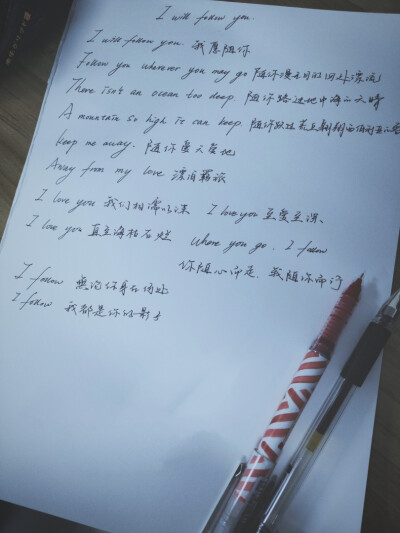 I will follow you.
I will follow you. 我愿随你
Follow you wherever you may go 随你漫无目的四处漂流
There isn't an ocean too deep. 随你路过地中海的
A mountain so high it can keep. 随你跃过荒土
keep me away. 随你爱天爱地
Away from my love 漂泊羁旅
I love you 我们相濡以沫 I love you 至爱至深、
I love you 直至海枯石烂 where you go. I follow
你随心而走、我随你而行
I follow 无论你身在何处
I follow 我都是你的影子